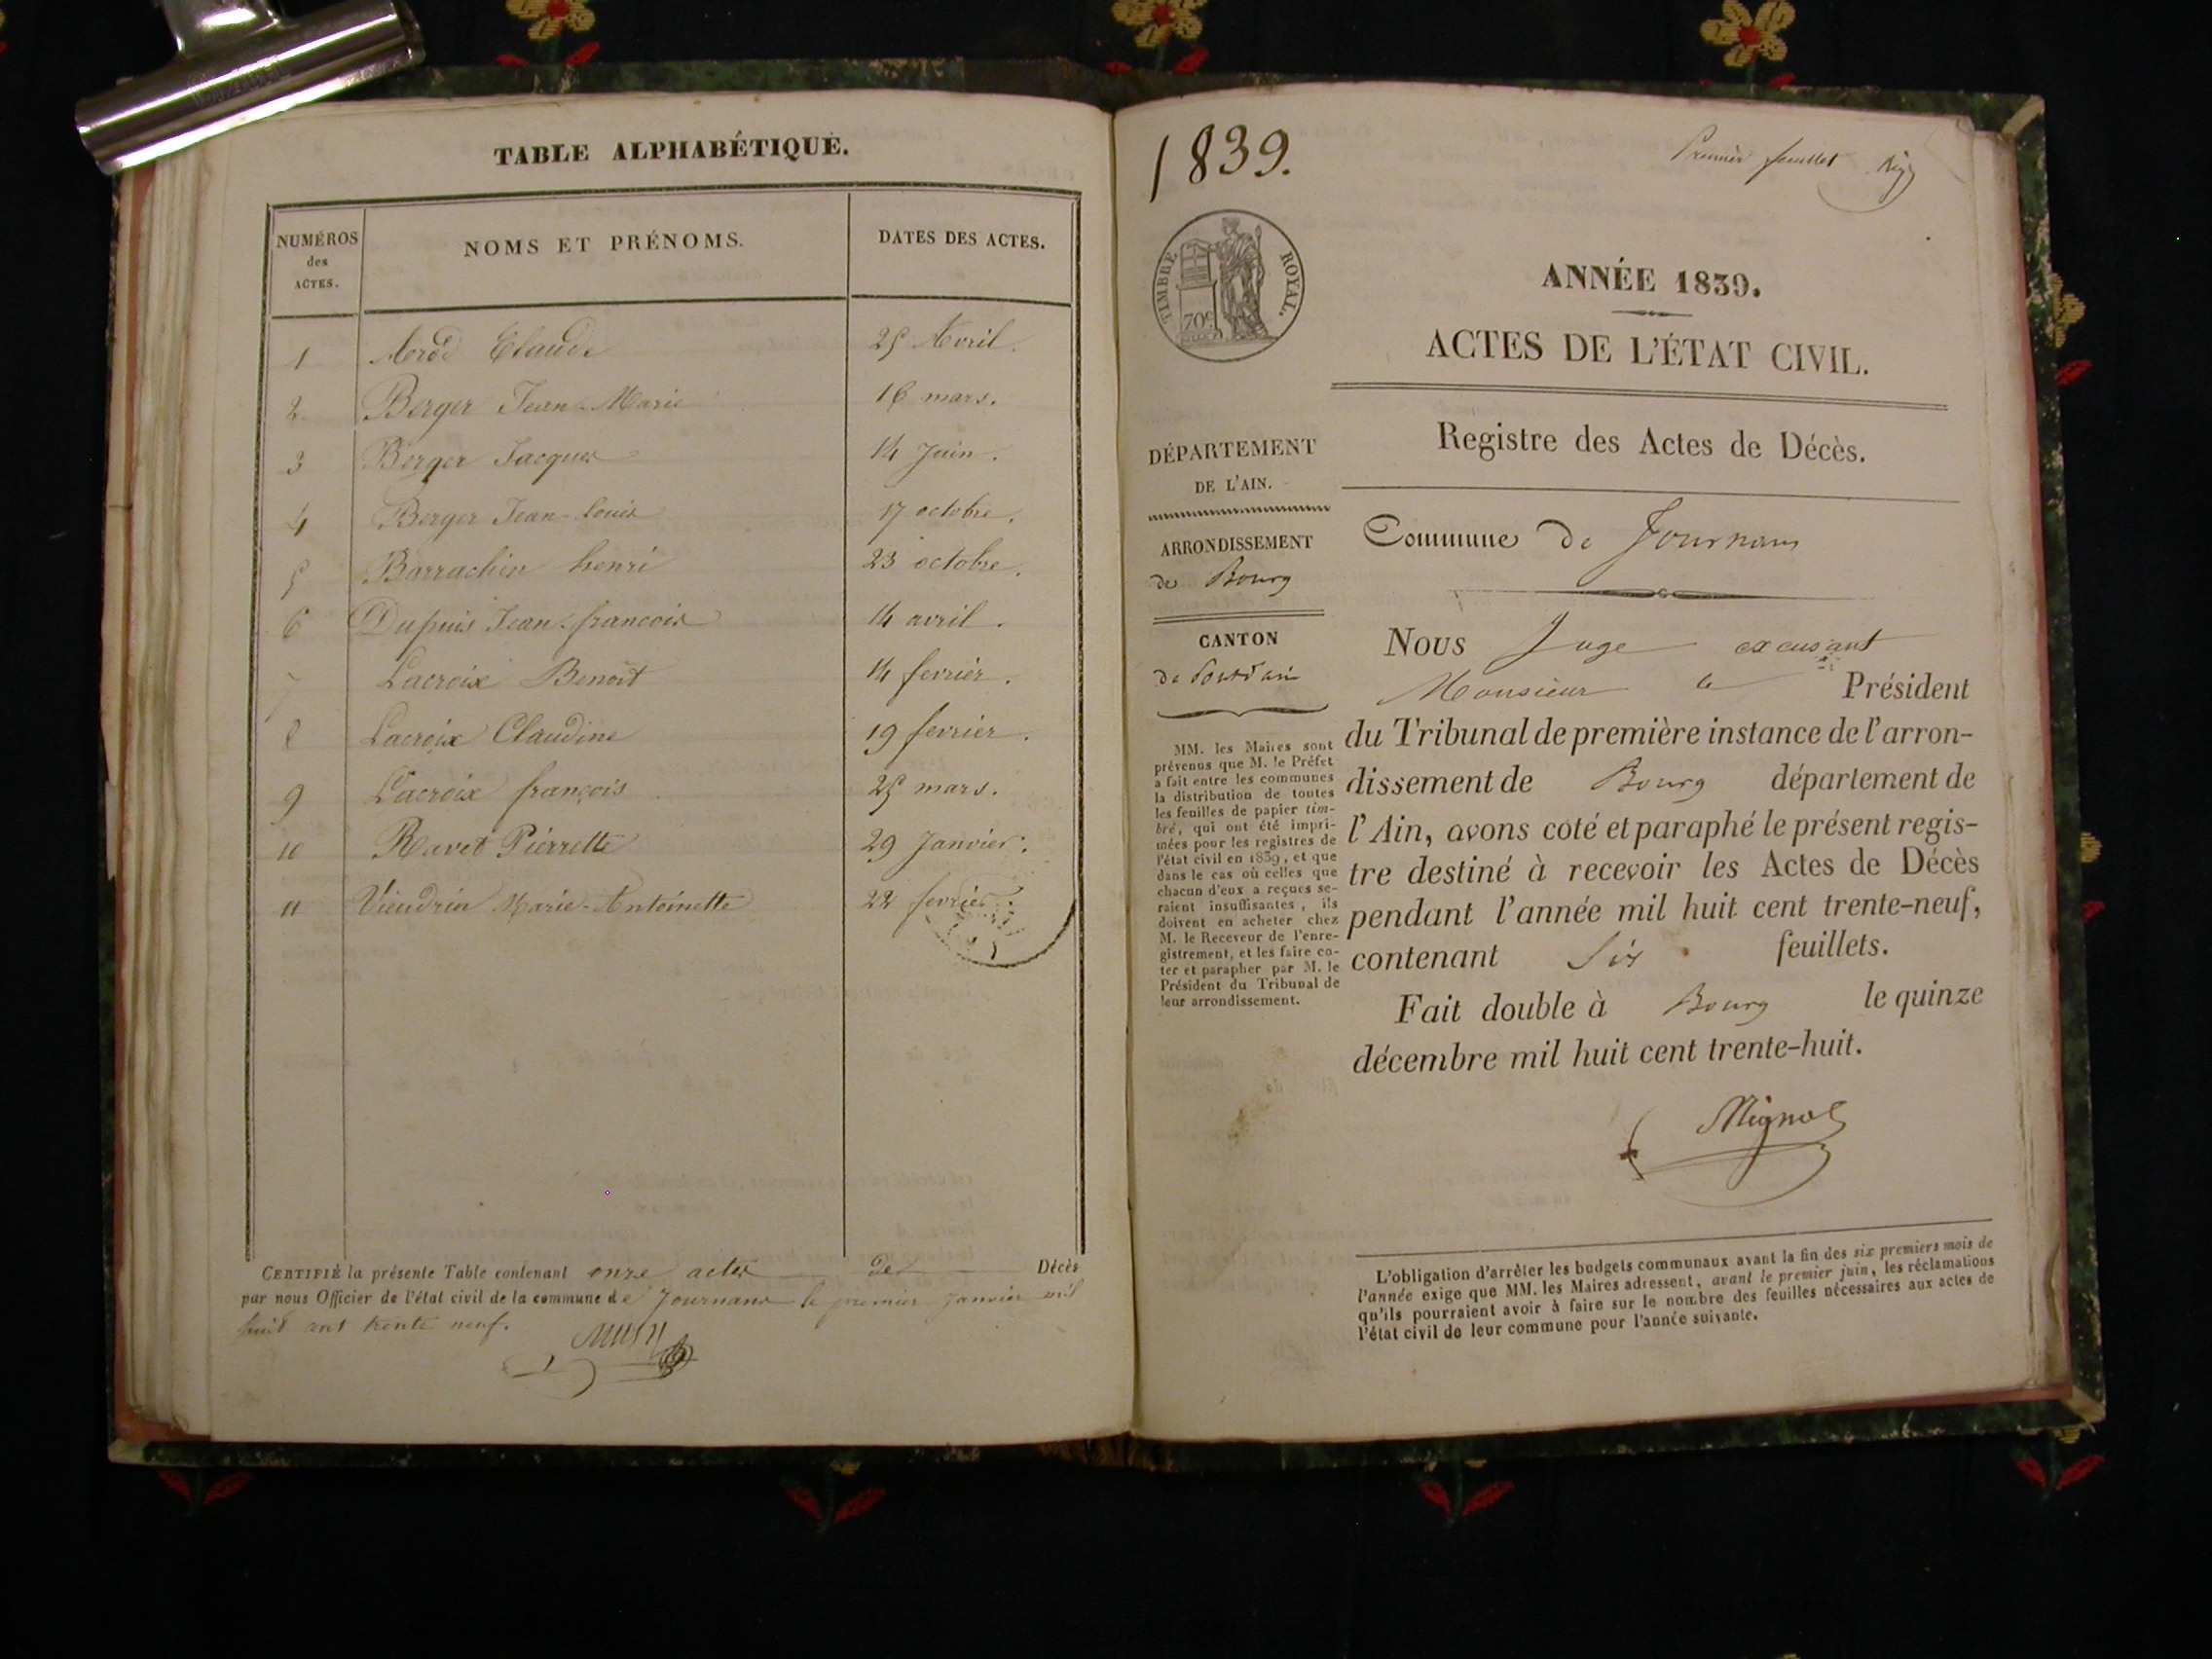 TABLE ALPHABÉTIQUE.
NUMÉROS
des
ACTES.
NOMS ET PRÉNOMS.
DATES DES ACTES.
1 Claude 25 Avril.
2 Berger Jean-Marie 16 mars.
3 Berger Jacques 14 Juin.
4 Berger Jean-Louis 17 octobre.
5 Borrachin henri 23 octobre.
6 Dupuis Jean-françois 14 avril.
7 Lacroix Benoît 14 fevrier.
8 Lacroix Claudine 19 fevrier.
9 Lacroix françois 25 mars.
10 Ravet Pierrette 29 Janvier.
11 Vieudrin Marie-Antoinette 22 fevrier.
CERTIFIÉ la présente Table contenant onze actes de Décès
par nous Officier de l'état civil de la commune de Journans le premier Janvier mil
huit cent trente neuf.
1839.
Premier feuillet
TIMBRE ROYAL.
70c
ANNÉE 1839.
ACTES DE L'ÉTAT CIVIL.
Registre des Actes de Décès.
DÉPARTEMENT
DE L'AIN.
ARRONDISSEMENT
de Bourg
CANTON
de Pontdain
MM. les Maires sont
prévenus que M. le Préfet
a fait entre les communes
la distribution de toutes
les feuilles de papier tim-
bré, qui ont été impri-
mées pour les registres de
l'état civil en 1839, et que
dans le cas où celles que
chacun d'eux a reçues se-
raient insuffisantes, ils
doivent en acheter chez
M. le Receveur de l'enre-
gistrement, et les faire co-
ter et parapher par M. le
Président du Tribunal de
leur arrondissement.
Commune de Journans
Nous Juge excusant
Monsieur le Président
du Tribunal de première instance de l'arron-
dissement de Bourg département de
l'Ain, avons coté et paraphé le présent regis-
tre destiné à recevoir les Actes de Décès
pendant l'année mil huit cent trente-neuf,
contenant Six feuillets.
Fait double à Bourg le quinze
décembre mil huit cent trente-huit.
L'obligation d'arrêter les budgets communaux avant la fin des six premiers mois de
l'année exige que MM. les Maires adressent, avant le premier juin, les réclamations
qu'ils pourraient avoir à faire sur le nombre des feuilles nécessaires aux actes de
l'état civil de leur commune pour l'année suivante.